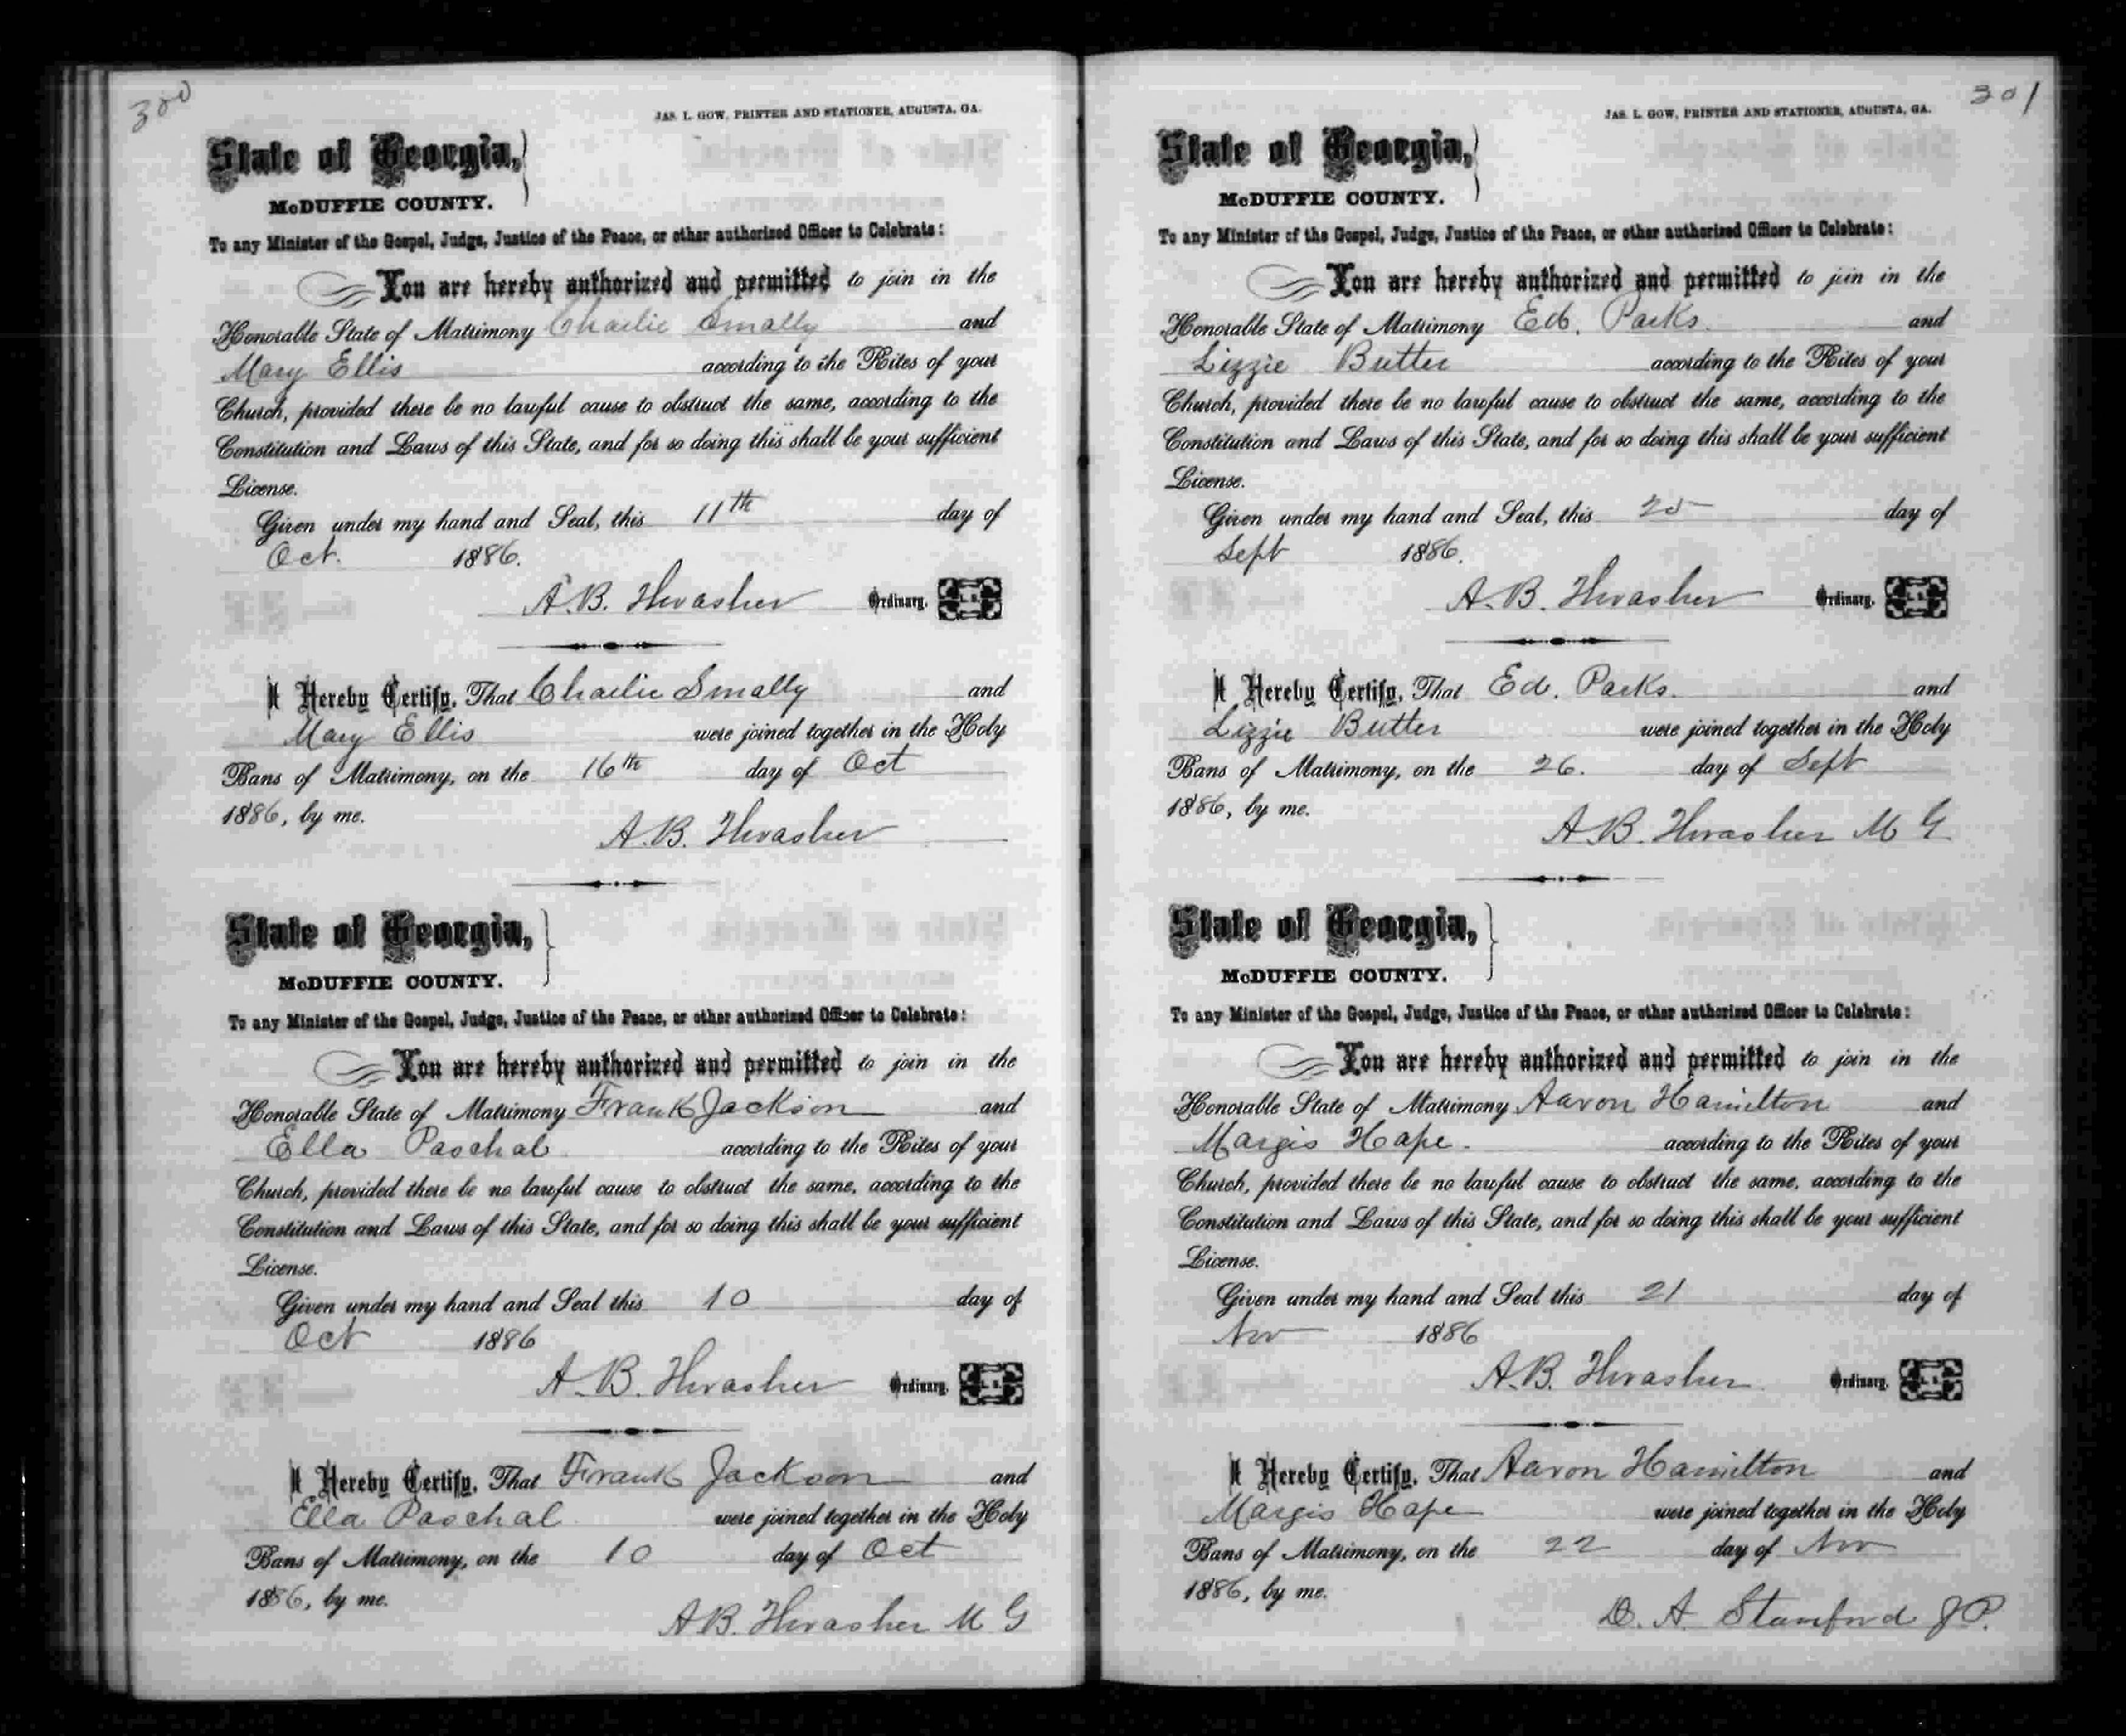 300
JAS. L. GOW, PRINTER AND STATIONER, AUGUSTA, GA.
State of Georgia,
McDUFFIE COUNTY.
To any Minister of the Gospel, Judge, Justice of the Peace, or other authorized Officer to Celebrate:
You are hereby authorized and permitted to join in the
Honorable State of Matrimony Charlie Smally and
Mary Ellis according to the Rites of your
Church, provided there be no lawful cause to obstruct the same, according to the
Constitution and Laws of this State, and for so doing this shall be your sufficient
License.
Given under my hand and Seal, this 11th day of
Oct. 1886.
A.B. Thrasher Ordinary. L. S.
I Hereby Certify, That Charlie Smally and
Mary Ellis were joined together in the Holy
Bans of Matrimony, on the 16th day of Oct
1886, by me.
A.B. Thrasher
State of Georgia,
McDUFFIE COUNTY.
To any Minister of the Gospel, Judge, Justice of the Peace, or other authorized Officer to Celebrate:
You are hereby authorized and permitted to join in the
Honorable State of Matrimony Frank Jackson and
Ella Paschal according to the Rites of your
Church, provided there be no lawful cause to obstruct the same, according to the
Constitution and Laws of this State, and for so doing this shall be your sufficient
License.
Given under my hand and Seal this 10 day of
Oct 1886
A.B. Thrasher Ordinary. L. S.
I Hereby Certify, That Frank Jackson and
Ella Paschal were joined together in the Holy
Bans of Matrimony, on the 10 day of Oct
1886, by me.
A.B. Thrasher M G
301
JAS. L. GOW, PRINTER AND STATIONER, AUGUSTA, GA.
State of Georgia,
McDUFFIE COUNTY.
To any Minister of the Gospel, Judge, Justice of the Peace, or other authorized Officer to Celebrate:
You are hereby authorized and permitted to join in the
Honorable State of Matrimony Ed. Parks. and
Lizzie Butler according to the Rites of your
Church, provided there be no lawful cause to obstruct the same, according to the
Constitution and Laws of this State, and for so doing this shall be your sufficient
License.
Given under my hand and Seal, this 25 day of
Sept 1886.
A.B. Thrasher Ordinary. L. S.
I Hereby Certify, That Ed. Parks. and
Lizzie Butler were joined together in the Holy
Bans of Matrimony, on the 26. day of Sept
1886, by me.
A.B. Thrasher M G
State of Georgia,
McDUFFIE COUNTY.
To any Minister of the Gospel, Judge, Justice of the Peace, or other authorized Officer to Celebrate:
You are hereby authorized and permitted to join in the
Honorable State of Matrimony Aaron Hamilton and
Margis Hape. according to the Rites of your
Church, provided there be no lawful cause to obstruct the same, according to the
Constitution and Laws of this State, and for so doing this shall be your sufficient
License.
Given under my hand and Seal this 21 day of
Nov 1886
A.B. Thrasher Ordinary. L. S.
I Hereby Certify, That Aaron Hamilton and
Margis Hape were joined together in the Holy
Bans of Matrimony, on the 22 day of Nov
1886, by me.
D. A. Stanford J P.